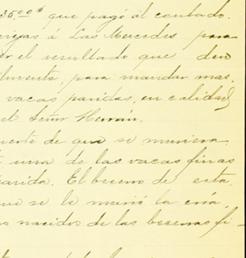 35.00 que pagó al contado.
á Las Mercedes para
er el resultado que den
mente, para mandar mas.
vacas paridas, en calidad
el Señor Huran.
uerte de que se muriera
una de las vacas finas
parida. El becerro de esta
que se le murió la cría
os nacidos de las becerras fi